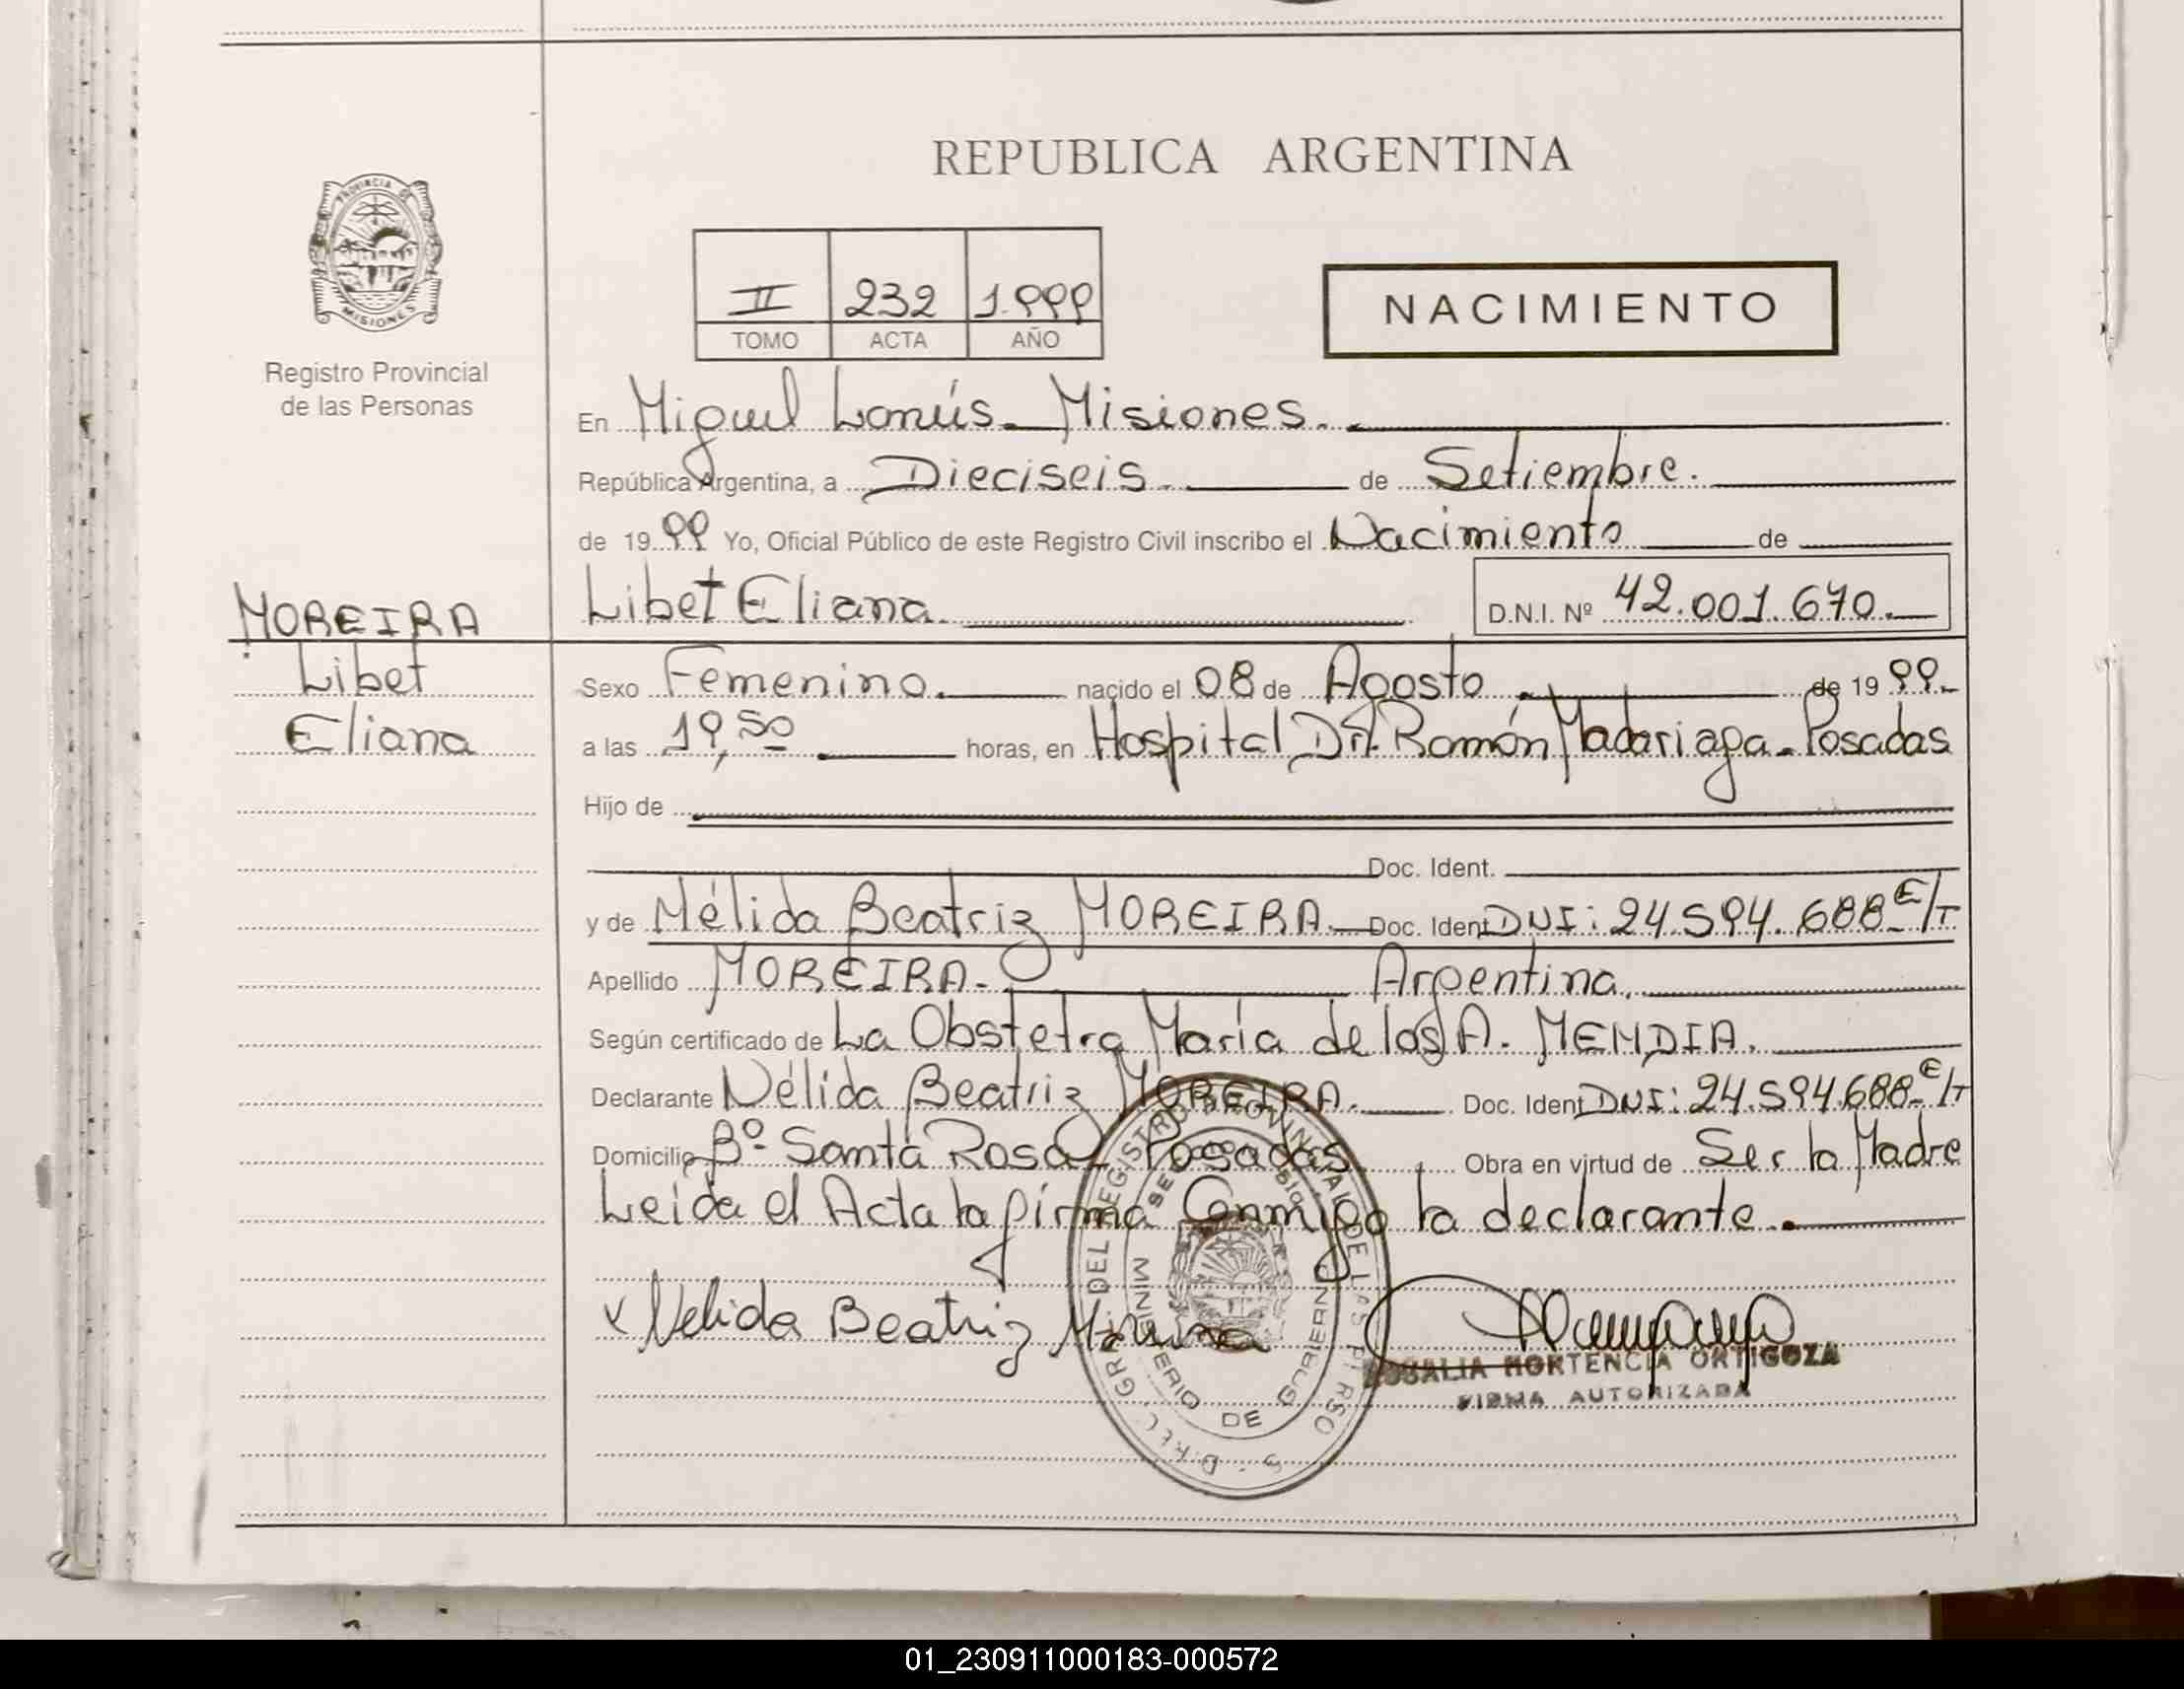 REPUBLICA ARGENTINA
PROVINCIA DE
MISIONES
Registro Provincial
de las Personas
II 232 1.999
TOMO ACTA AÑO
NACIMIENTO
En Miguel Lanús - Misiones.
República Argentina, a Dieciseis. de Setiembre.
de 1999 Yo, Oficial Público de este Registro Civil inscribo el Nacimiento de
MOREIRA
Libet
Eliana
Libet Eliana. D.N.I. Nº 42.001.670.
Sexo Femenino. nacido el 08 de Agosto. de 1999.
a las 19,50 horas, en Hospital Dr. Ramón Madariaga - Posadas
Hijo de
Doc. Ident.
y de Nélida Beatriz MOREIRA. Doc. Ident DNI: 24.594.688 - E/T
Apellido MOREIRA. Argentina.
Según certificado de La Obstetra María de los A. MENDIA.
Declarante Nélida Beatriz MOREIRA. Doc. Ident DNI: 24.594.688 - E/T
Domicilio Bº Santa Rosa - Posadas Obra en virtud de Ser la Madre
Leida el Acta la firma Conmigo la declarante.
x Nelida Beatriz Moreira
ROSALIA HORTENCIA ORTIGOZA
FIRMA AUTORIZADA
MINISTERIO DE GOBIERNO
01_230911000183-000572